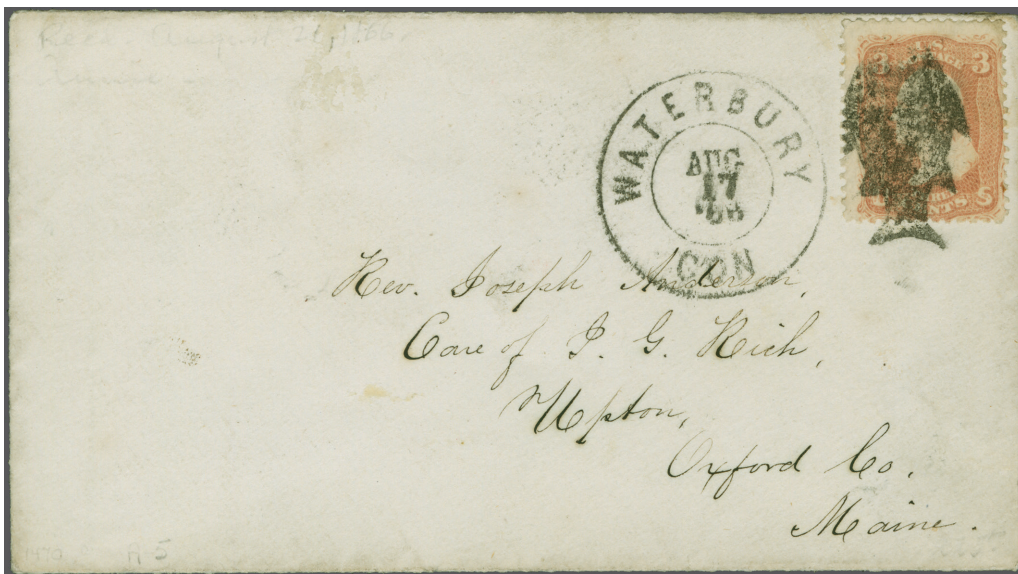 Recd. August 21, 1866.
U.S.
3 3
CENTS
WATERBURY
AUG
17
'66
CON
Rev. Joseph Anderson,
Care of J. G. Rich,
Upton,
Oxford Co.
Maine.
1470 A-5